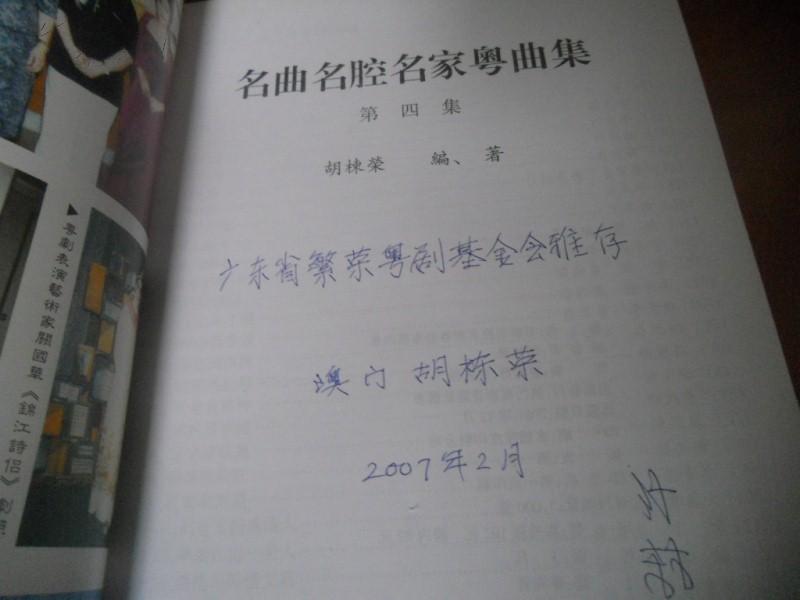 名曲名腔名家粤曲集
第四集
胡棟榮 編、著
广东省繁荣粤剧基金会雅存
澳门 胡栋荣
2007年2月
▶粵劇表演藝術家關國華《錦江詩侶》劇照